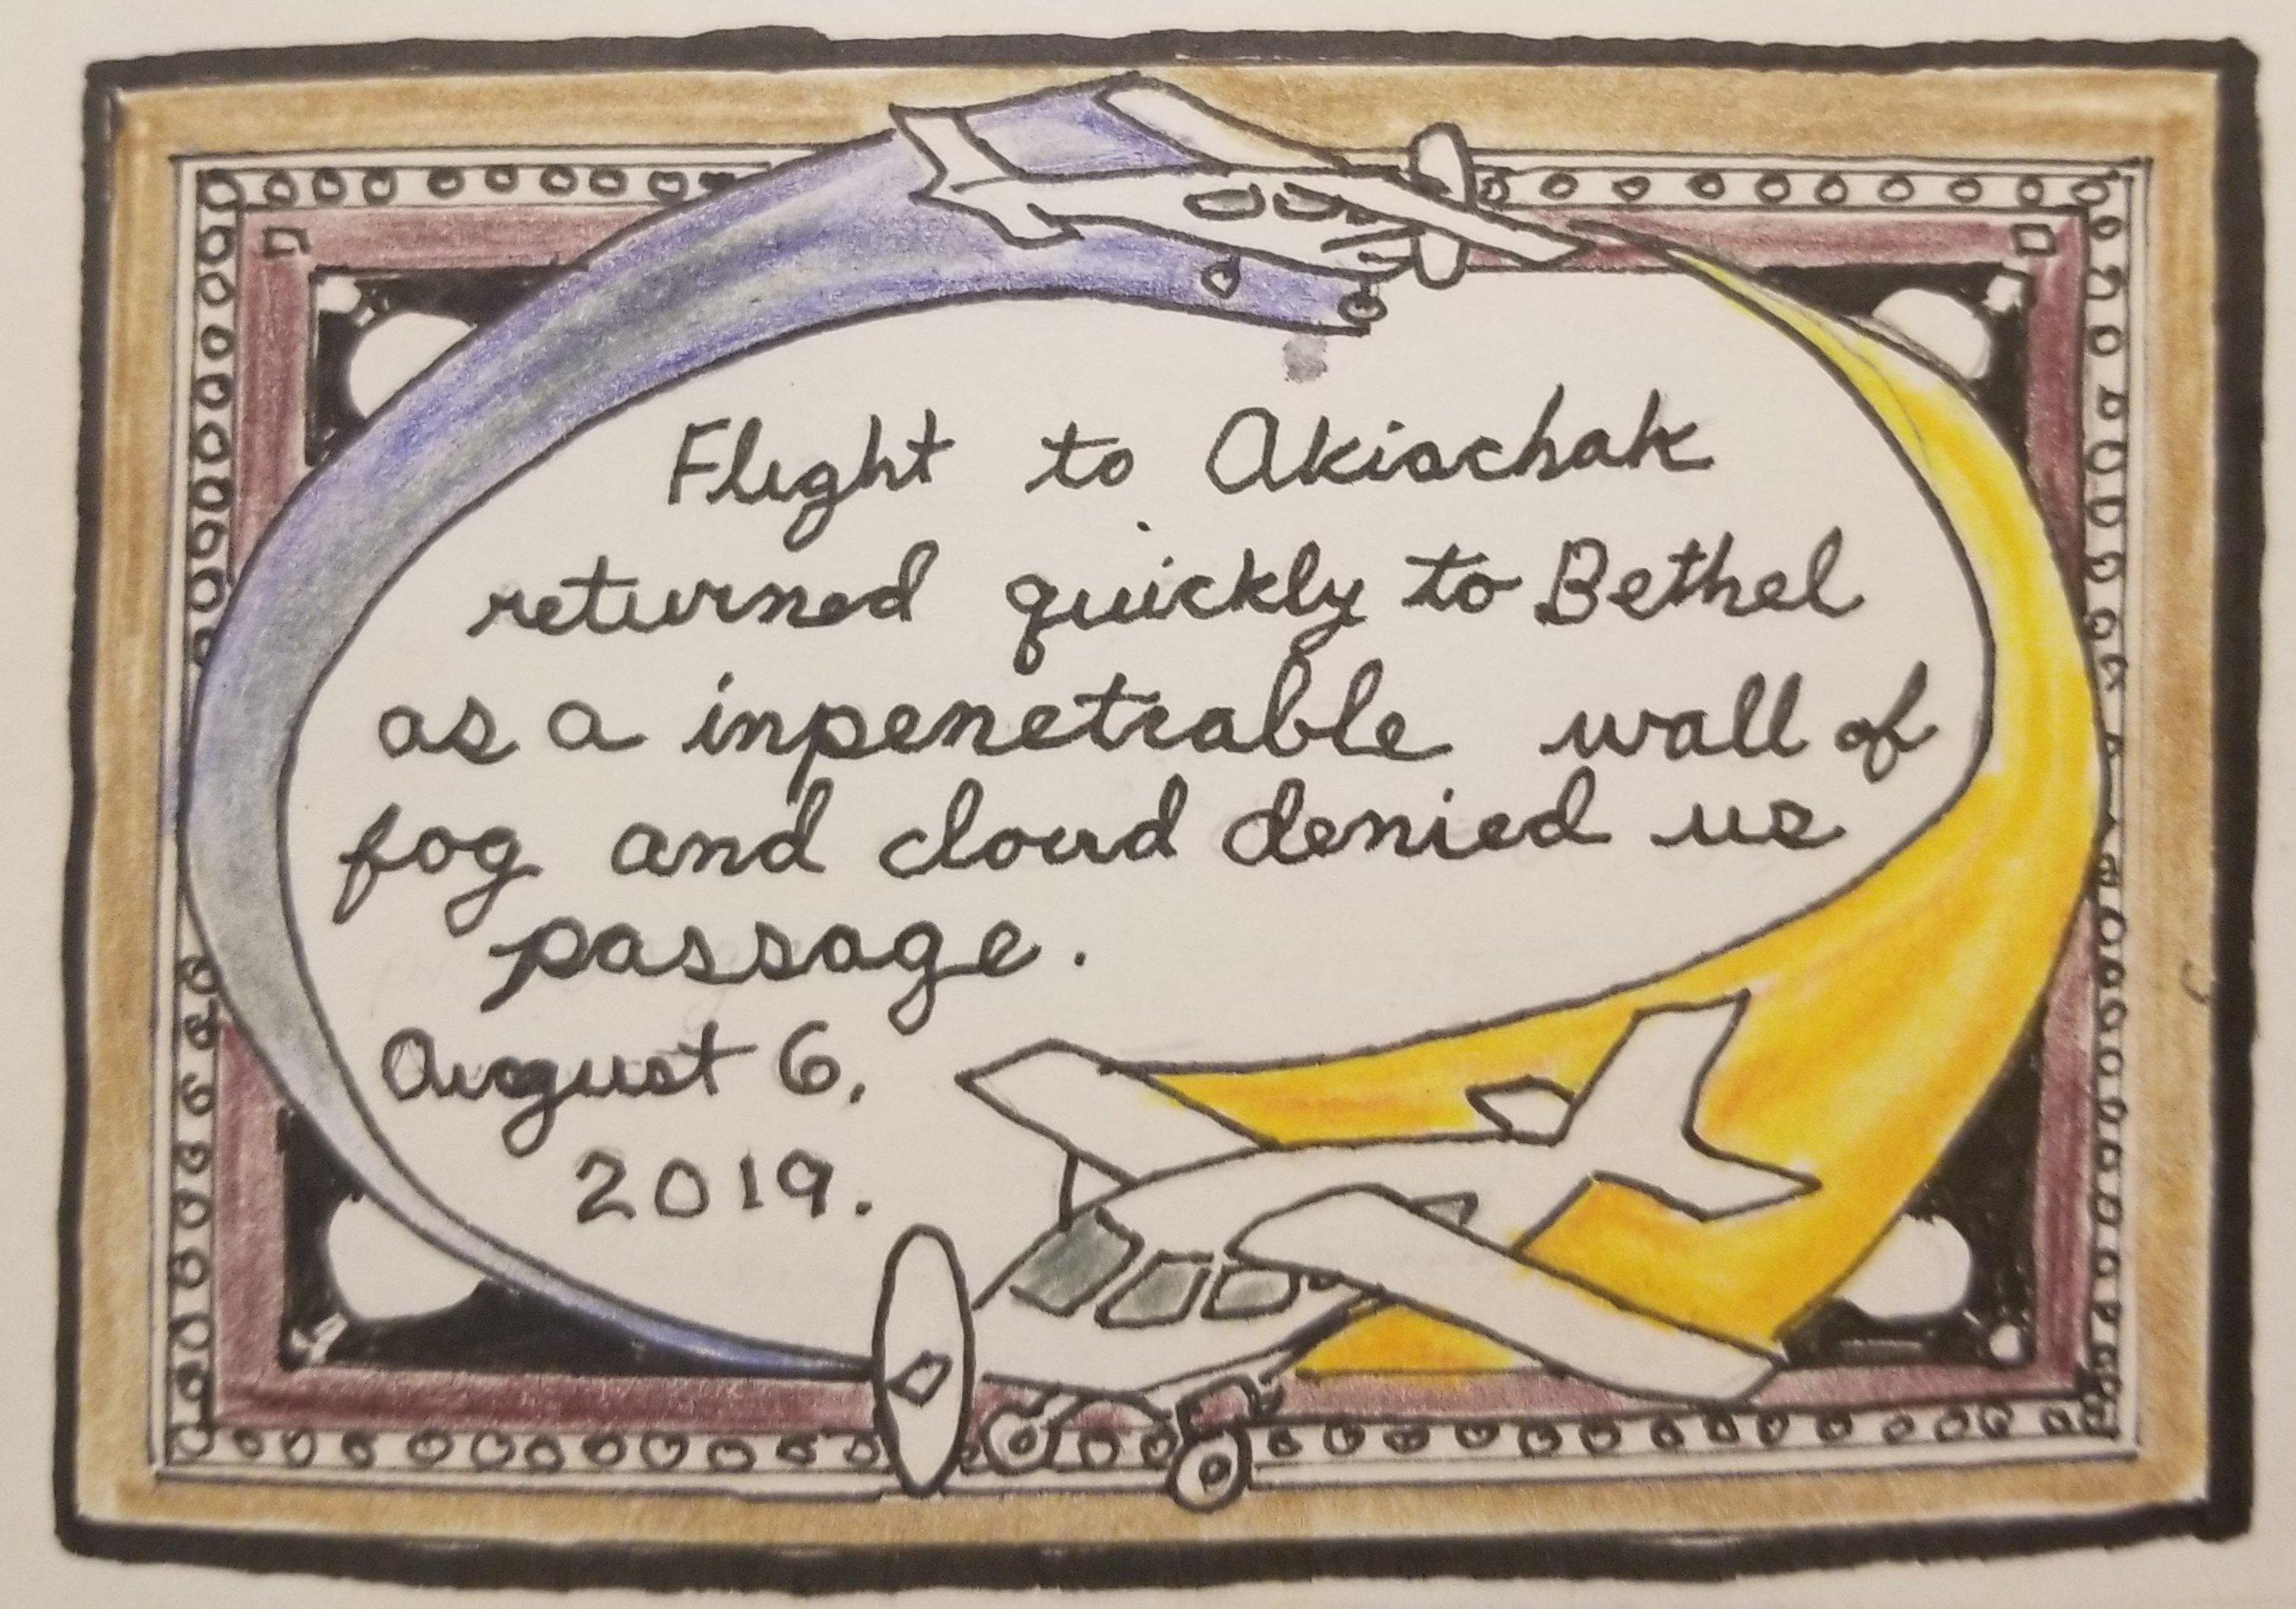 Flight to Akiachak
returned quickly to Bethel
as a inpenetrable wall of
fog and cloud denied us
passage.
August 6,
2019.